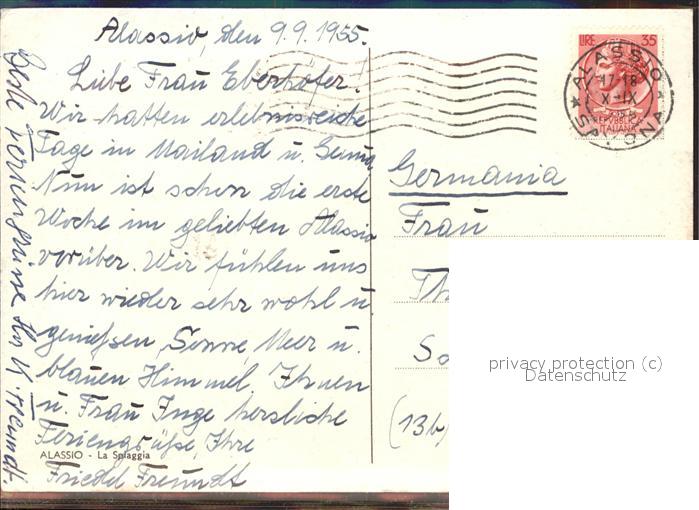 Alassio, den 9.9.1955.
Liebe Frau Eberhöfer!
Wir hatten erlebnisreiche
Tage in Mailand u. Genua
Nun ist schon die erste
Woche im geliebten Alassio
vorüber. Wir fühlen uns
hier wieder sehr wohl u.
genießen, Sonne, Meer u.
blauen Himmel. Ihnen
u. Frau Inge herzliche
Feriengrüße, Ihre
ALASSIO - La Spiaggia
Friedel Freundt
Beste Feriengrüsse Ihr K. Freundt.
LIRE 35
REPUBBLICA
ITALIANA
ALASSIO
17-18
SAVONA
Germania
Frau
Th
(13b)
privacy protection (c)
Datenschutz